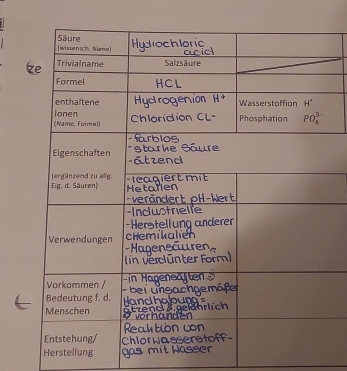 Säure
(wissensch. Name)
Hydrochloric
acid
Trivialname
Salzsäure
ze
Formel
HCL
enthaltene
Ionen
(Name, Formel)
Hydrogenion H⁺
Chloridion CL-
Wasserstoffion H⁺
Phosphation PO₄³⁻
Eigenschaften
(ergänzend zu allg.
Eig. d. Säuren)
-farblos
-starke Säure
-ätzend
-reagiert mit
Metallen
-verändert pH-Wert
Verwendungen
-Industrielle
-Herstellung anderer
Chemikalien
-Magensäuren
(in verdünter Form)
Vorkommen /
Bedeutung f. d.
Menschen
-in Magensäften
-bei unsachgemäßer
Handhabung =
ätzend & gefährlich
vorhanden
Entstehung/
Herstellung
Reaktion von
Chlorwasserstoff-
gas mit Wasser